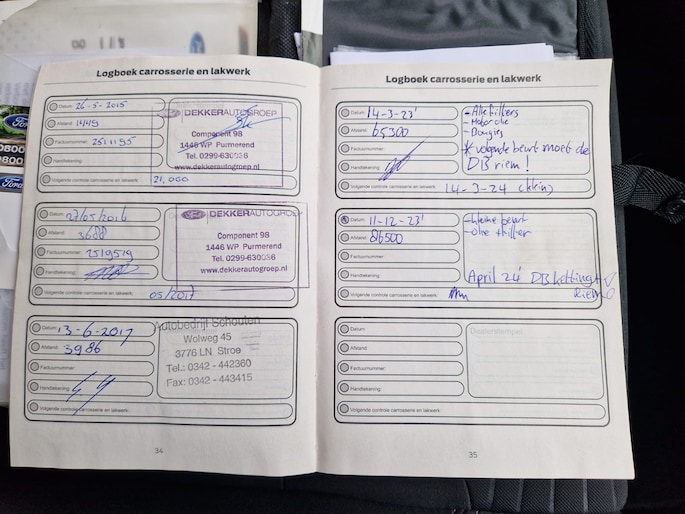 Ford
Ford
Logboek carrosserie en lakwerk
Datum: 26-5-2015
Afstand: 1449
Factuurnummer: 2511195
Handtekening:
Volgende controle carrosserie en lakwerk: 21,000
DEKKERAUTOGROEP
Component 98
1446 WP Purmerend
Tel. 0299-630638
www.dekkerautogroep.nl
Datum: 27/05/2016
Afstand: 3688
Factuurnummer: 2519519
Handtekening:
Volgende controle carrosserie en lakwerk: 05/2017
DEKKERAUTOGROEP
Component 98
1446 WP Purmerend
Tel. 0299-630638
www.dekkerautogroep.nl
Datum: 13-6-2017
Afstand: 3986
Factuurnummer:
Handtekening:
Volgende controle carrosserie en lakwerk:
Autobedrijf Schouten
Wolweg 45
3776 LN Stroe
Tel.: 0342 - 442360
Fax: 0342 - 443415
34
Logboek carrosserie en lakwerk
Datum: 14-3-23'
Afstand: 65300
Factuurnummer:
Handtekening:
Volgende controle carrosserie en lakwerk: 14-3-24 (klein)
- Alle filters
- Motorolie
- Bougies
* volgende beurt moet de
DB riem!
Datum: 11-12-23'
Afstand: 86500
Factuurnummer:
Handtekening:
Volgende controle carrosserie en lakwerk:
- kleine beurt
- olie + filter
April 24' DB ketting
Riem
Datum:
Afstand:
Factuurnummer:
Handtekening:
Volgende controle carrosserie en lakwerk:
Dealerstempel
35